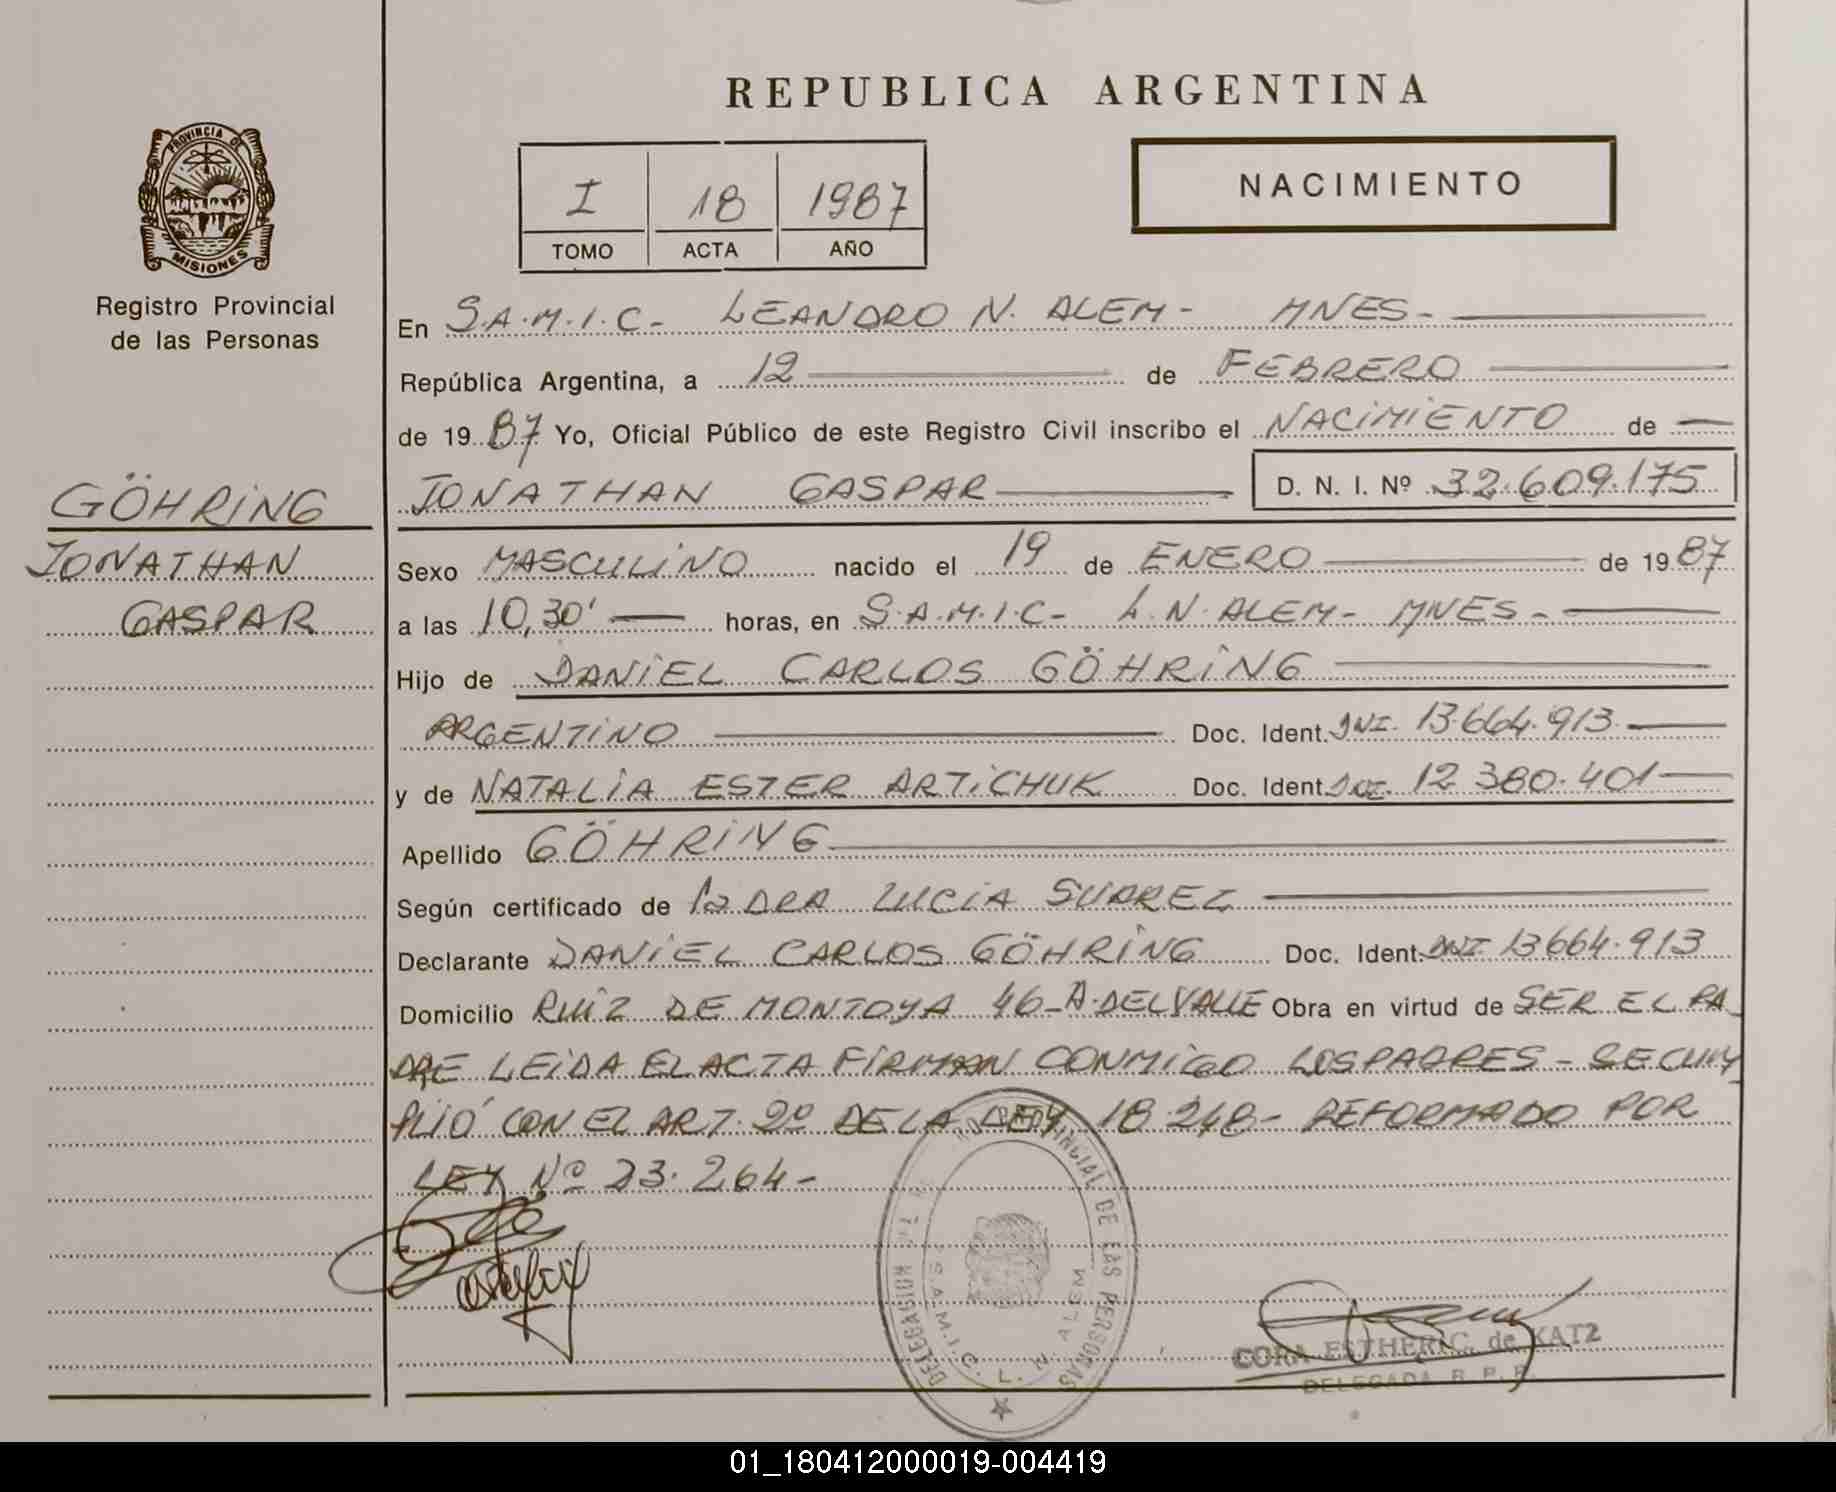 REPUBLICA ARGENTINA
PROVINCIA DE
MISIONES
Registro Provincial
de las Personas
I 18 1987
TOMO ACTA AÑO
NACIMIENTO
En S.A.M.I.C- LEANDRO N. ALEM- MNES-
República Argentina, a 12 de FEBRERO
de 1987 Yo, Oficial Público de este Registro Civil inscribo el NACIMIENTO de
GÖHRING
JONATHAN
GASPAR
JONATHAN GASPAR D. N. I. Nº 32.609.175
Sexo MASCULINO nacido el 19 de ENERO de 1987
a las 10,30' horas, en S.A.M.I.C- L.N. ALEM- MNES-
Hijo de DANIEL CARLOS GÖHRING
ARGENTINO Doc. Ident. DNI. 13.664.913
y de NATALIA ESTER ARTICHUK Doc. Ident. DNI. 12 380.401
Apellido GÖHRING
Según certificado de la DRA LUCIA SUAREZ
Declarante DANIEL CARLOS GÖHRING Doc. Ident. DNI 13664.913
Domicilio RUIZ DE MONTOYA 46-A.DELVALLE Obra en virtud de SER EL PA_
DRE LEIDA EL ACTA FIRMAN CONMIGO LOS PADRES - SE CUM_
PLIÓ CON EL ART. 2º DE LA LEY 18.248- REFORMADO POR
LEY Nº 23.264-
PROVINCIAL DE LAS PERSONAS
DELEGACION
S.A.M.I.C. L. N. ALEM
CORA ESTHER C. de KATZ
DELEGADA R. P. P.
01_180412000019-004419